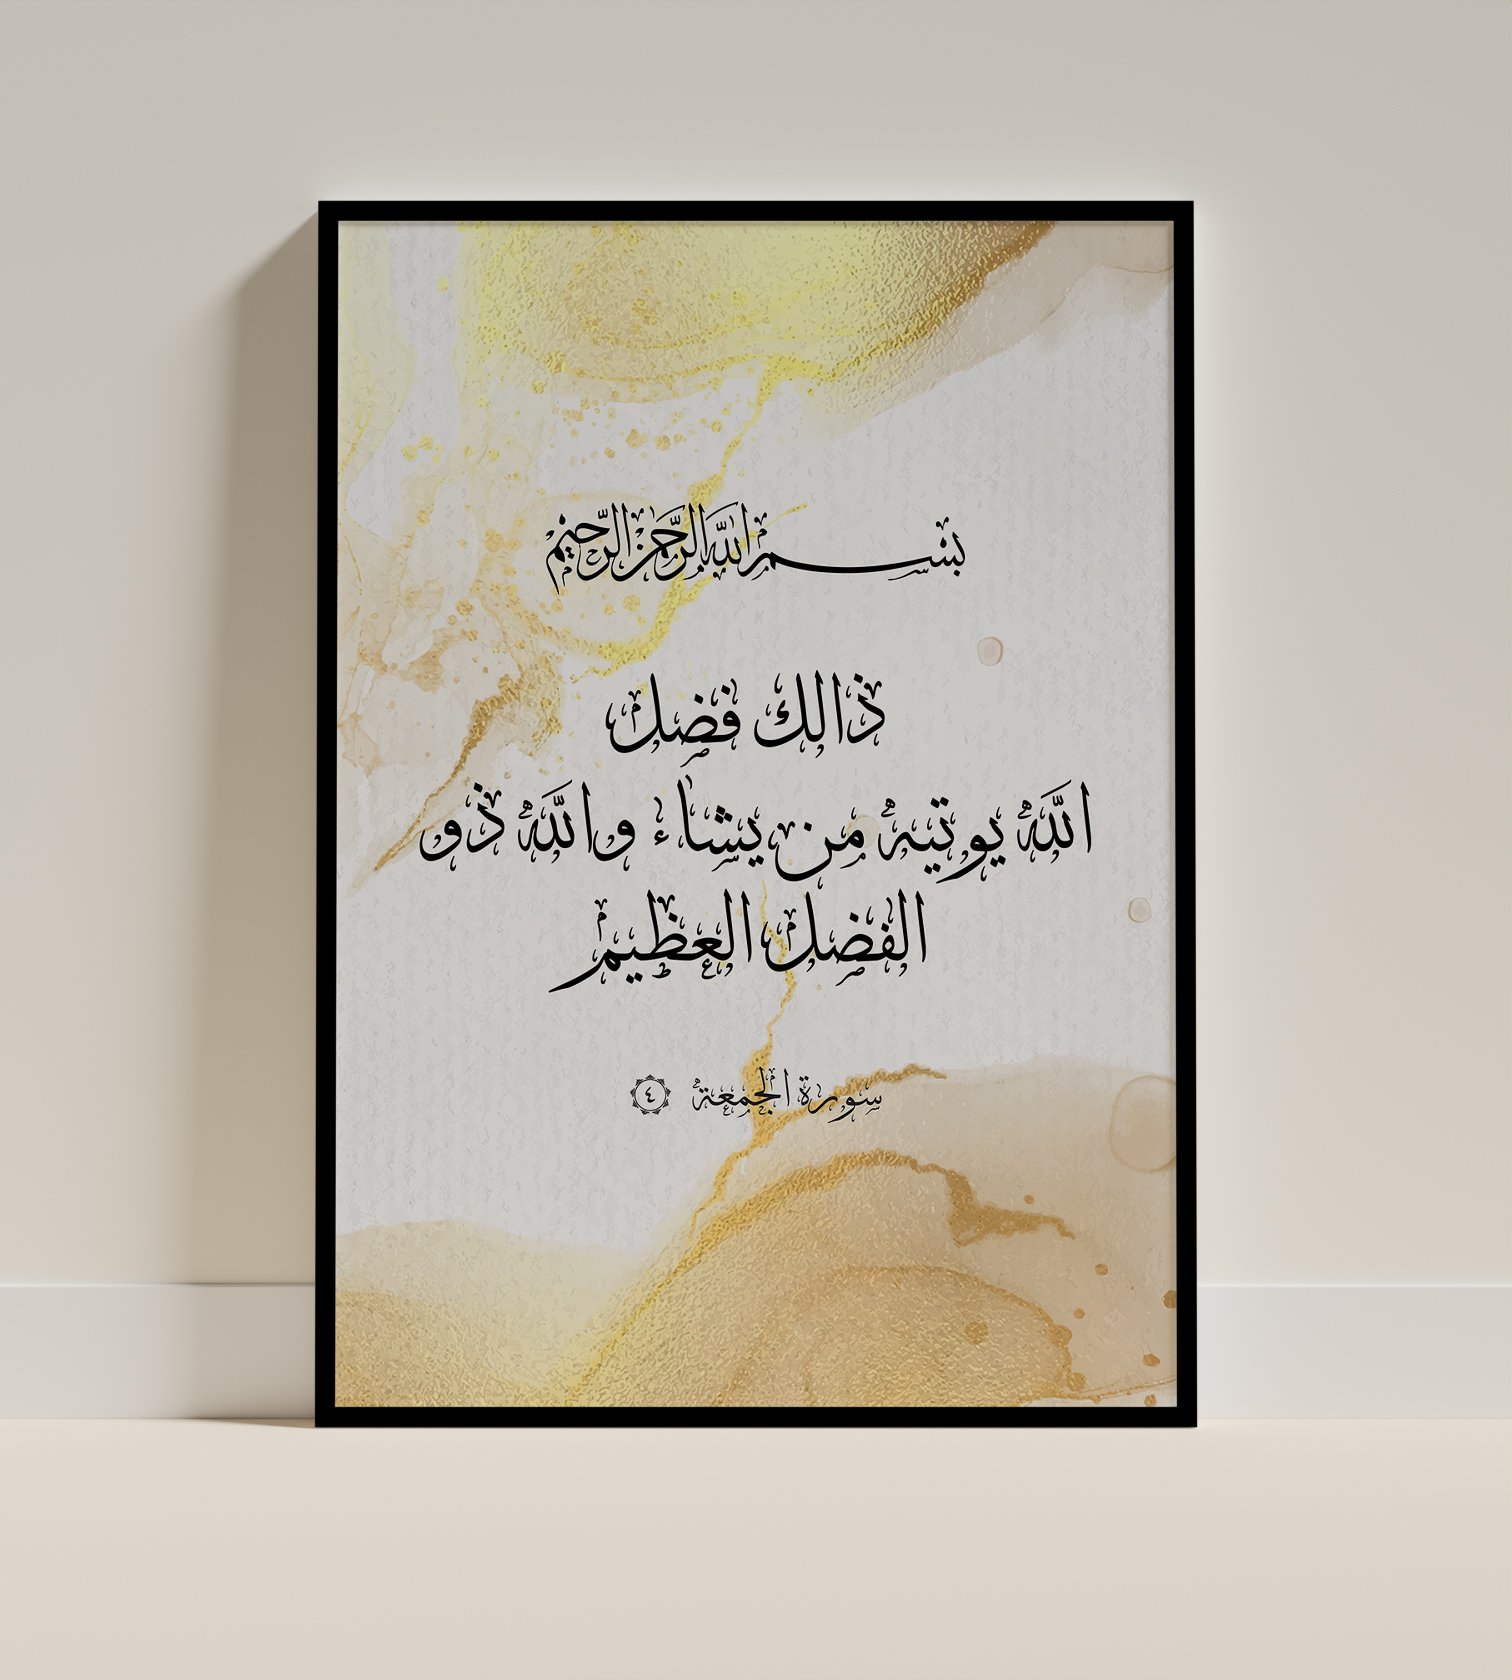 بسم الله الرحمن الرحيم
ذالك فضل
الله يوتيه من يشاء والله ذو
الفضل العظيم
سورة الجمعة ٤